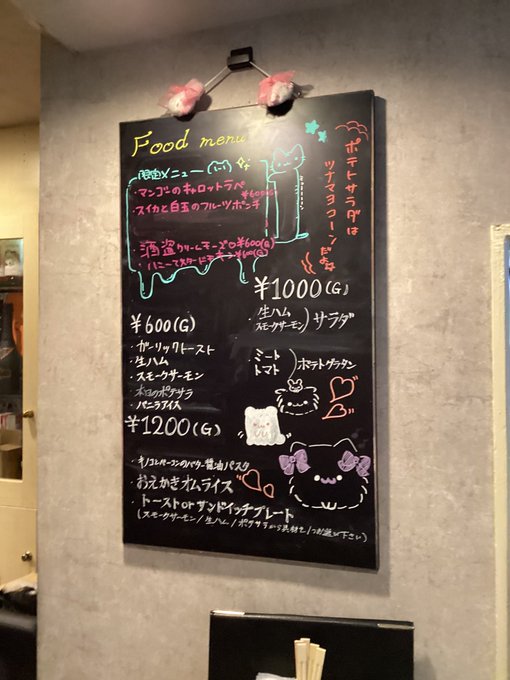 Food menu
限定メニュー
・マンゴーのキャロットラペ
¥600(G)
・スイカと白玉のフルーツポンチ
酒盗クリームチーズ ¥600(G)
・ハニーマスタードチキン ¥600(G)
ポテトサラダは
ツナマヨコーンだよ
¥1000(G)
・生ハム
スモークサーモン
サラダ
・ミート
トマト
ポテトグラタン
¥600(G)
・ガーリックトースト
・生ハム
・スモークサーモン
・本日のポテサラ
・バニラアイス
¥1200(G)
・キノコとベーコンのバター醤油パスタ
・おえかきオムライス
・トーストorサンドイッチプレート
(スモークサーモン/生ハム/ポテサラから具材を1つお選び下さい)